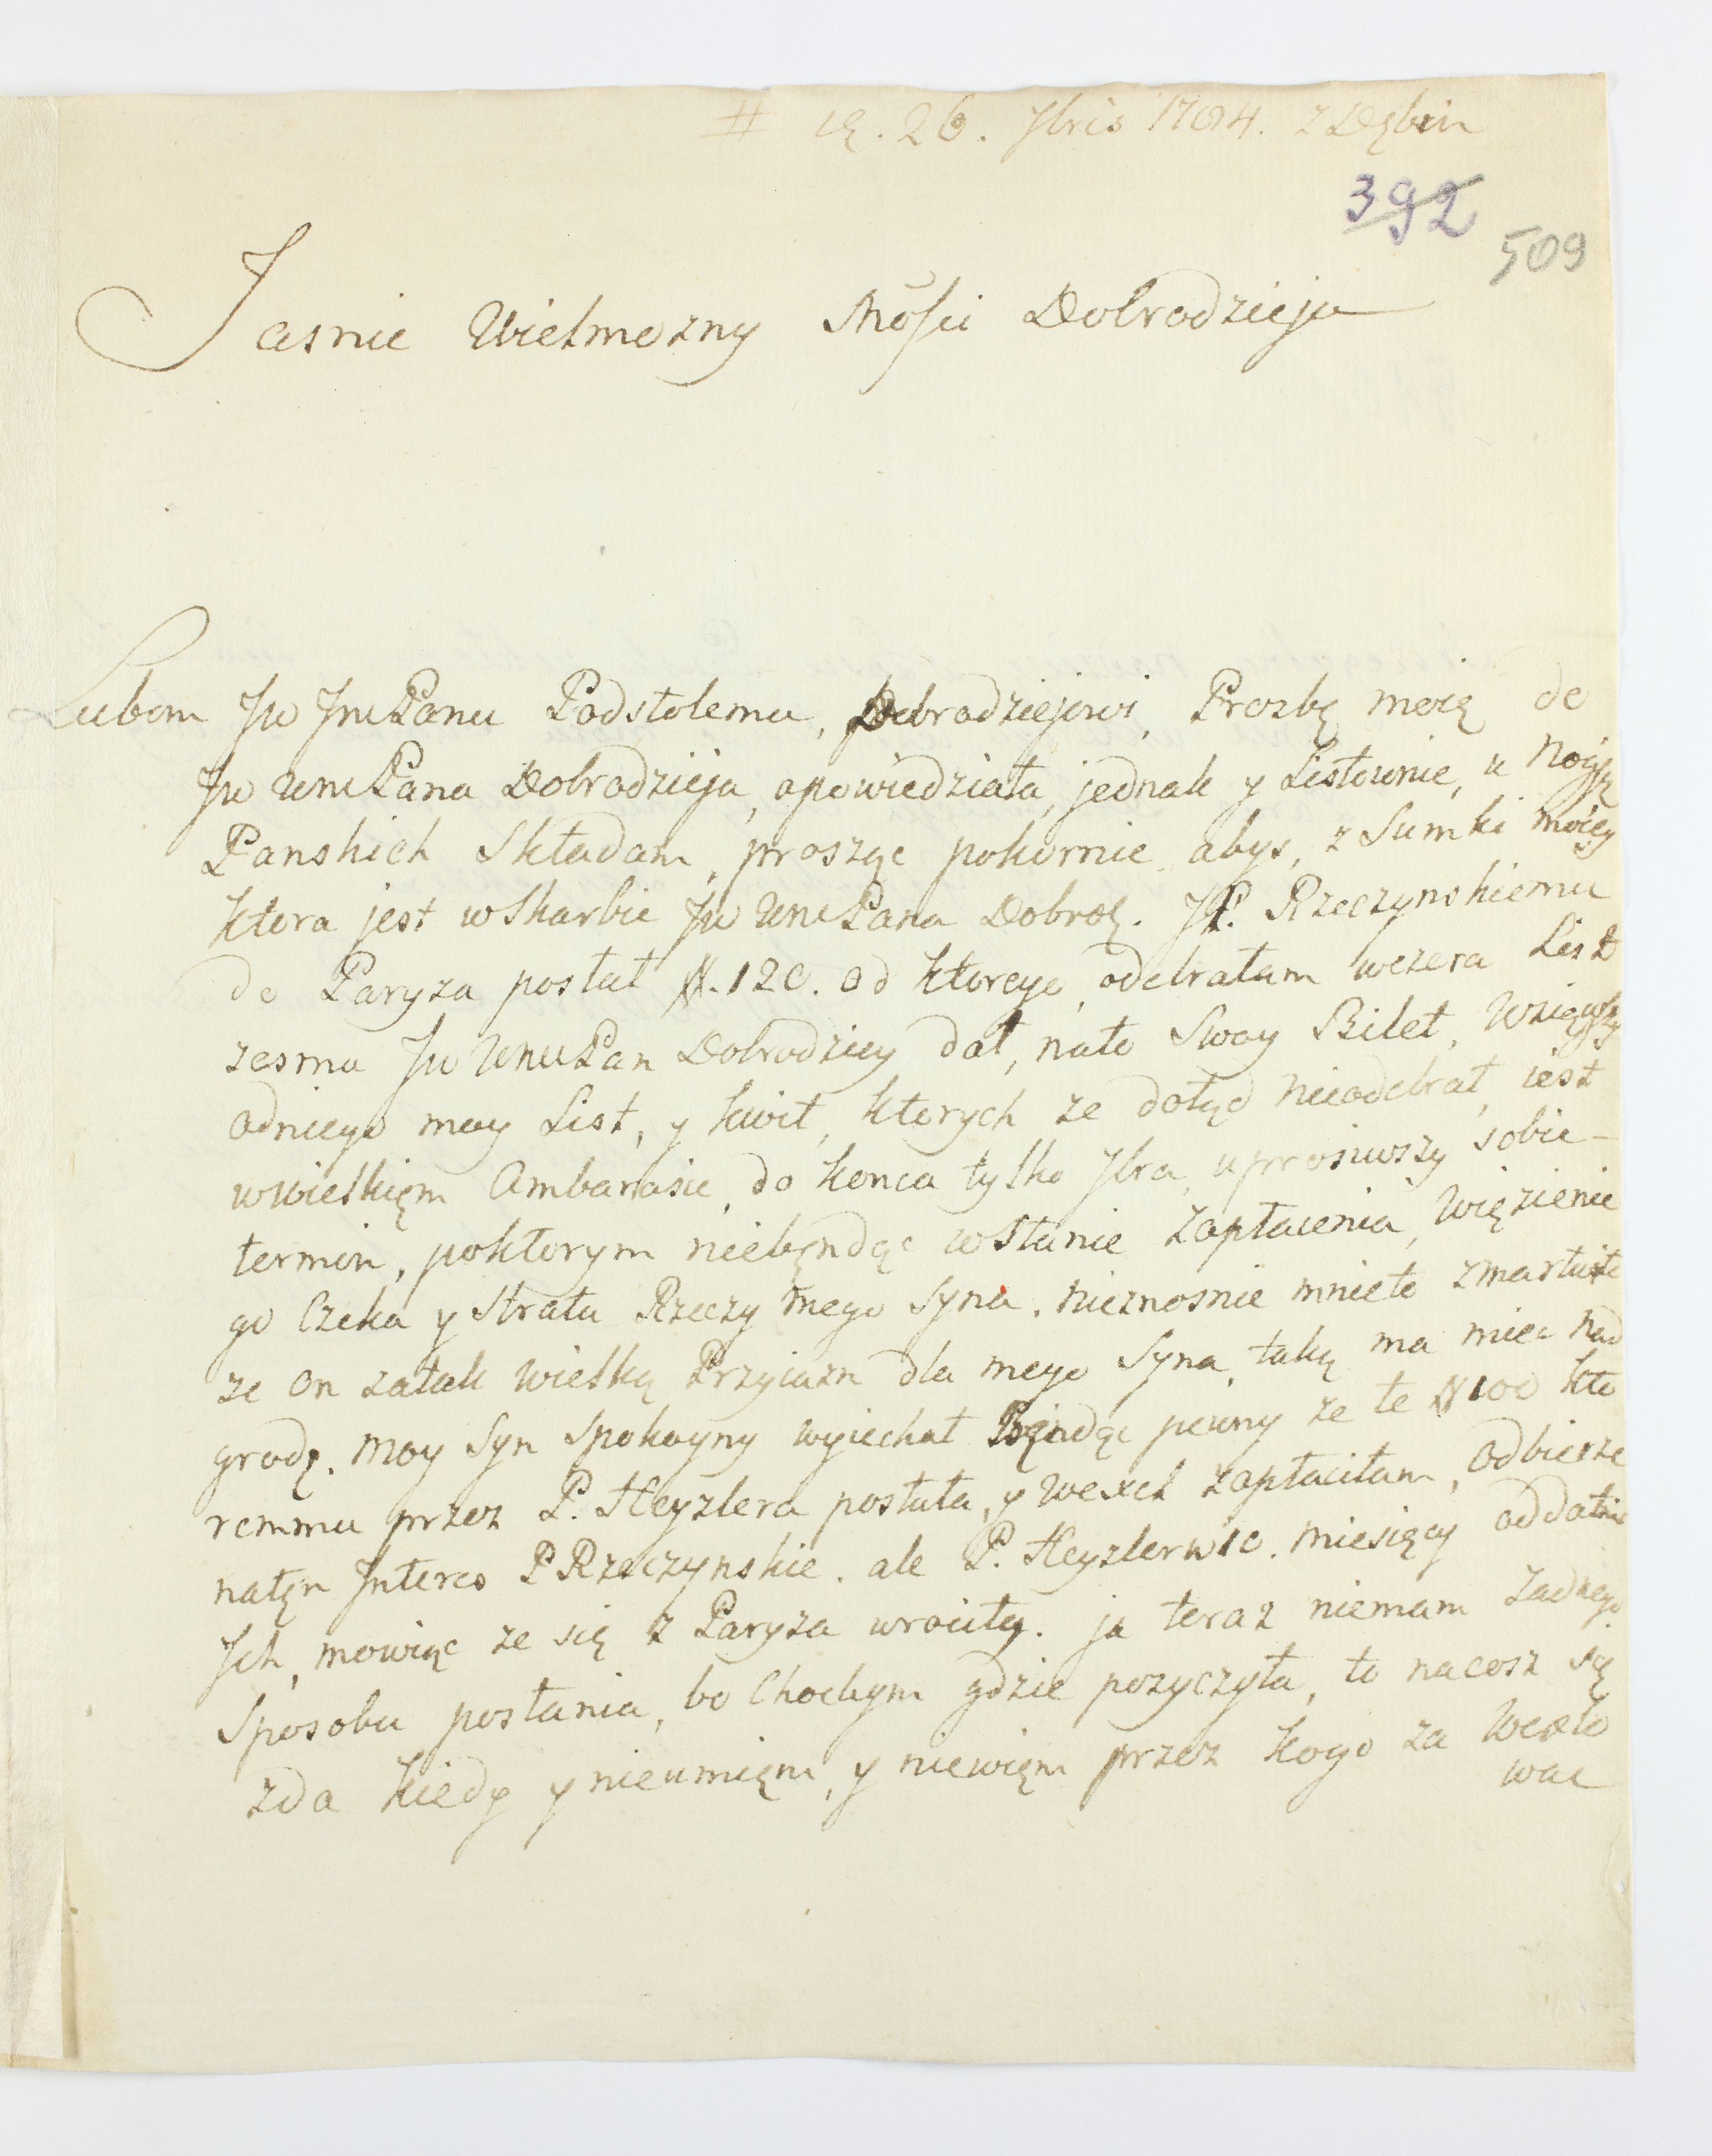 # 26. 7bris 1784. z Dębin
392
509
Jasnie Wielmozny Mości Dobrodzieju
Lubom Jw JmPanu Podstolemu, Dobrodziejowi, Prozbę moię do
Jw WmPana Dobrodzieja, opowiedziała, jednak y Listownie, u Nog
Panskich Składam, prosząc pokornie, abys, z Sumki moiey
ktora jest w Skarbie Jw WmPana Dobrodz. JP. Rzeczynskiemu
do Paryza posłał #. 120. od ktorego, odebrałam wczera List
zesmu Jw WmPan Dobrodziey dał, nato Swoy Bilet, Wziąwszy
odniego moy List, y kwit, ktorych ze dotąd nieodebrał, iest
wwielkięm Ambarasie, do konca tylko 7bra, uprosiwszy sobie
termin, poktorym niebęndąc wStanie zapłacenia, Więzienie
go Czeka y Strata Rzeczy mego Syna. nieznosnie mnieto zmartwiło
ze On zatak wielką Przyiazn dla mego Syna, taką ma miec nad
grodę. moy Syn Spokoyny wyiechał Bęndąc pewny ze te # 100 kto
remmu przez P. Heyzlera posłała, y wexel zapłaciłam, odbierze
natęn Interes P Rzeczynskie. ale P. Heyzler w 10. miesięcy oddał mi
Ich, mowiąc ze się z Paryza wrociły. ja teraz niemam Zadnego
Sposobu posłania, bo Chocbym gdzie pozyczyła, to nacosz się
zda kiedy y nieumięm, y niewięm przez kogo za Wexlo
wac